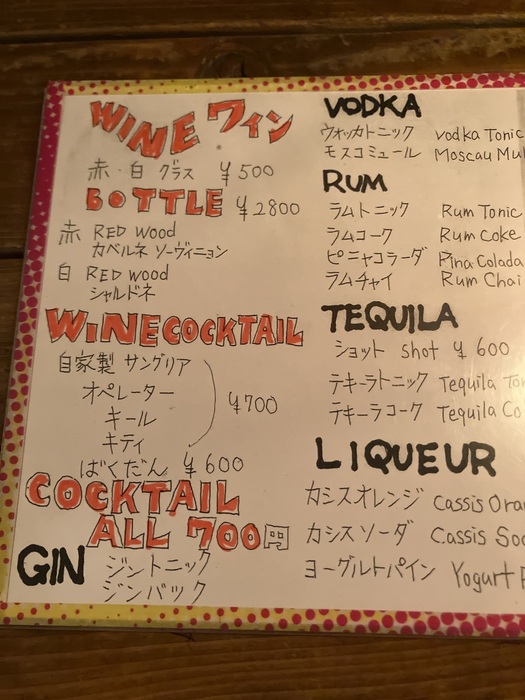 WINE ワイン
赤・白 グラス ¥500
BOTTLE ¥2800
赤 RED wood
カベルネ ソーヴィニョン
白 RED wood
シャルドネ
WINECOCKTAIL
自家製 サングリア
オペレーター
キール
キティ
¥700
ばくだん ¥600
COCKTAIL
ALL 700円
GIN ジントニック
ジンバック
VODKA
ウォッカトニック vodka Tonic
モスコミュール Moscau Mul
RUM
ラムトニック Rum Tonic
ラムコーク Rum Coke
ピニャコラーダ Pina Colada
ラムチャイ Rum Chai
TEQUILA
ショット shot ¥600
テキーラトニック Tequila To
テキーラコーク Tequila Co
LIQUEUR
カシスオレンジ Cassis Ora
カシスソーダ Cassis Sod
ヨーグルトパイン Yogurt P